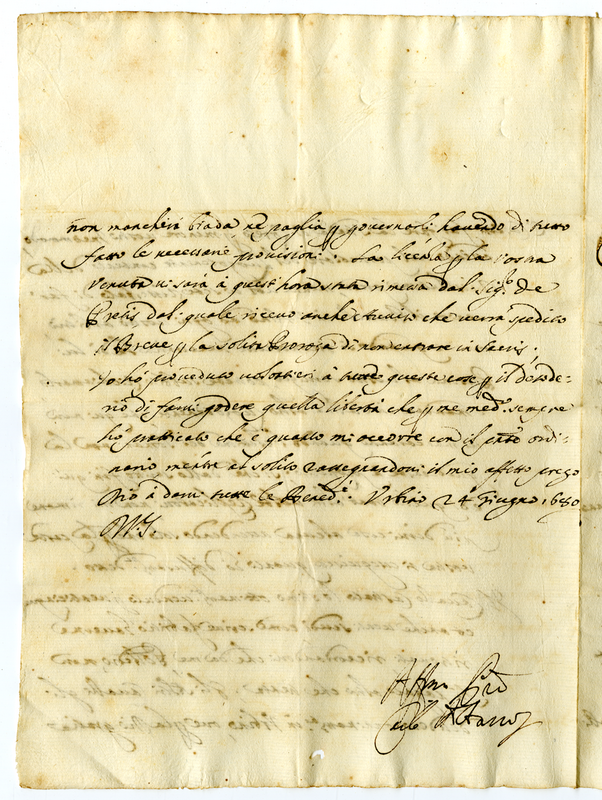 non mancherà biada nè paglia p governarli havendo di tutto
fatto le necessarie provisioni. La licēza p la vostra
venuta vi sarà a quest'hora stata rimessa dal Sigr. de
Pretis dal quale ricevo anche avviso che verrà spedito
il Breve p la solita Proroga di non entrare in Sacris;
Io hò proveduto volontieri à tutte queste cose p il deside-
rio di farvi godere quella libertà che p me med.o sempre
hò pratticato che è quanto mi occorre con il pñte ordi-
nario mentre al solito rassegnandovi il mio affetto prego
Dio à darvi tutte le Bened.i. Urbino 24 Giugno 1680
Affmo